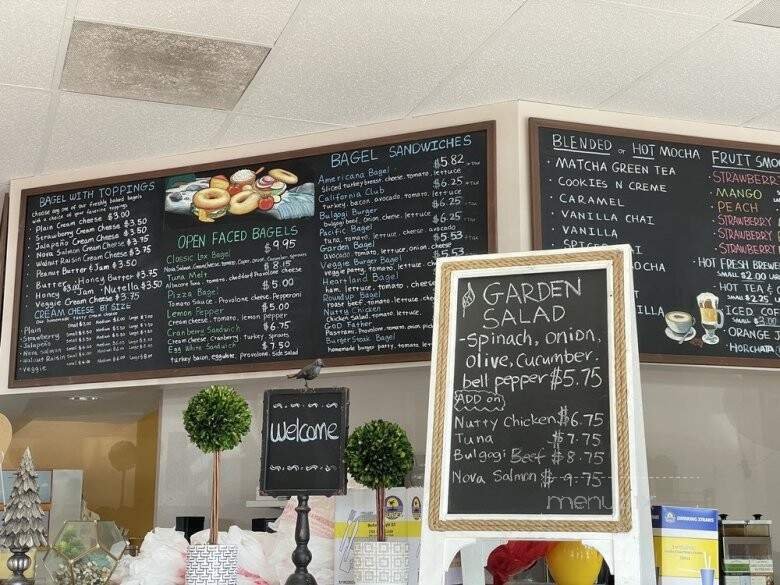 BAGEL WITH TOPPINGS
choose any one of our freshly baked bagels
with a choice of your favorite toppings
Plain Cream Cheese $3.00
Strawberry Cream Cheese $3.50
Jalapeño Cream Cheese $3.50
Nova Salmon Cream Cheese $3.75
Walnut Raisin Cream Cheese $3.75
Peanut Butter & Jam $3.50
Butter Honey Butter $3.75
Honey Jam Nutella $3.50
Veggie Cream Cheese $3.75
CREAM CHEESE BY SIZE
Plain
Strawberry
Jalapeño
Nova Salmon
Walnut Raisin
Veggie
OPEN FACED BAGELS
Classic Lox Bagel $9.95
Tuna Melt $8.15
Albacore tuna, tomato, cheddar/Provolone cheese
Pizza Bagel $5.00
Tomato Sauce, Provolone cheese, Pepperoni
Lemon Pepper $5.00
Cream cheese, tomato, lemon pepper
Cranberry Sandwich $6.75
Cream cheese, Cranberry, Turkey, sprouts
Egg White Sandwich $7.50
turkey bacon, eggwhite, Provolone, Side salad
BAGEL SANDWICHES
Americana Bagel $5.82
Sliced turkey breast, cheese, tomato, lettuce
California Club $6.25
turkey, bacon, avocado, tomato, lettuce
Bulgogi Burger $6.25
bulgogi beef, onion, cheese, lettuce
Pacific Bagel $6.25
tuna, tomato, lettuce, cheese, avocado
Garden Bagel $5.53
avocado, tomato, lettuce, onion, cheese
Veggie Burger Bagel $5.53
veggie patty, tomato, cheese
Heartland Bagel
ham, lettuce, tomato, cheese
Roundup Bagel
roast beef, tomato, lettuce
Nutty Chicken
Chicken salad, tomato, lettuce
God Father
Pastrami, Provolone, tomato, onion
Burger Steak Bagel
homemade burger patty, tomato
BLENDED or HOT MOCHA
· MATCHA GREEN TEA
· COOKIES N CREME
· CARAMEL
· VANILLA CHAI
· VANILLA
FRUIT SMO
·STRAWBERR
MANGO
PEACH
·STRAWBERRY
·STRAWBERRY
·STRAWBERRI
·HOT FRESH BREWE
SMALL $2.00
·HOT TEA &
SMALL $2.25
·ICED COF
SMALL $3.00
·ORANGE J
·HORCHATA
OCHA
ILLA
welcome
GARDEN
SALAD
-Spinach, onion,
olive, cucumber.
bell pepper $5.75
ADD on
Nutty Chicken $6.75
Tuna $7.75
Bulgogi Beef $8.75
Nova Salmon $9.75
menu
DRINKING STRAWS